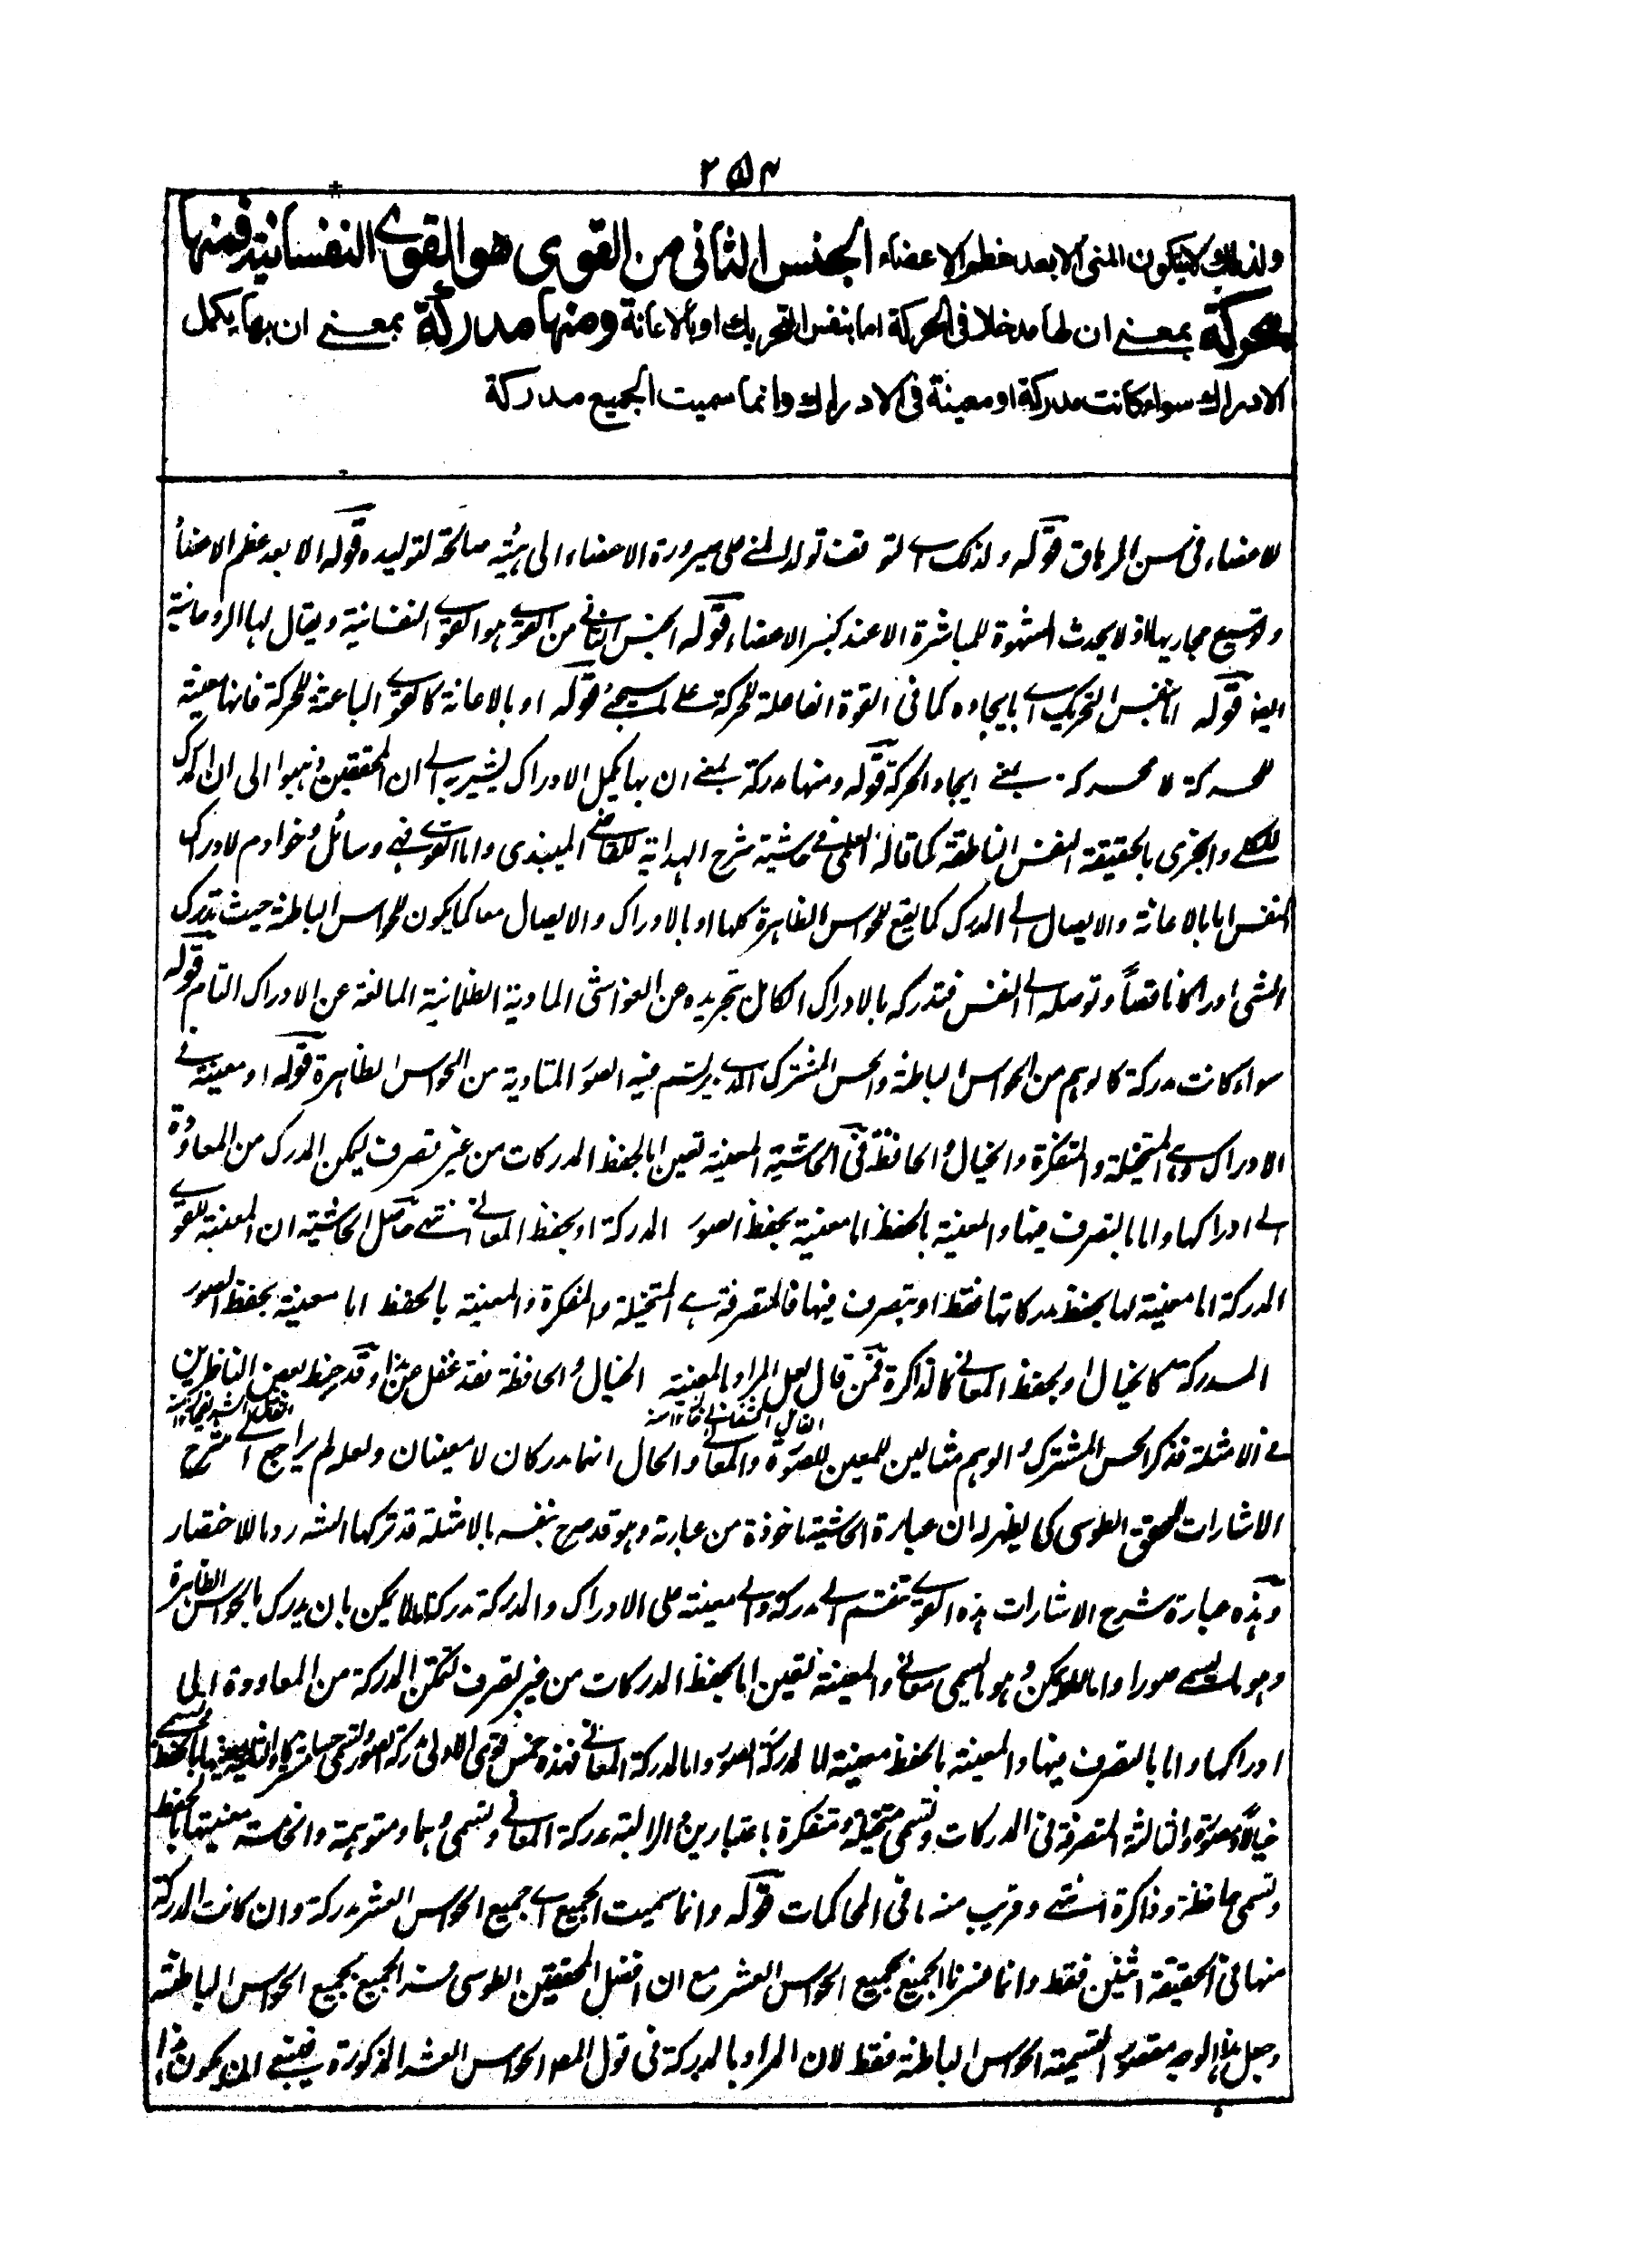 ٢٥٤
ولذلك لا يتكون المنى الا بعد عظم الاعضاء الجنس الثانى من القوى هو القوى النفسانية فمنها
محركة بمعنى ان لها مدخلا فى الحركة اما بنفس التحريك او بالاعانة ومنها مدركة بمعنى ان بها يكمل
الادراك سواء كانت مدركة او معينة فى الادراك وانما سميت الجميع مدركة
للاعضاء فى سن المرهاق قوله ولذلك اى لتوقف تولد المنى على صيرورة الاعضاء الى هيئة صالحة لتوليده قوله الا بعد عظم الاعضاء
وتوسيع مجاريها اذ لا يحدث الشهوة للمباشرة الا عند كبر الاعضاء قوله الجنس الثانى من القوى هو القوى النفسانية ويقال لها الروحانية
ايضا قوله اما بنفس التحريك اى بايجاده كما فى القوة الفاعلة للحركة على ما سيجئ قوله او بالاعانة كالقوى الباعثة للحركة فانها معينة
للمحركة لا محركة بمعنى ايجاد الحركة قوله ومنها مدركة بمعنى ان بها يكمل الادراك يشير به الى ان المحققين ذهبوا الى ان المدرك
للكلى والجزى بالحقيقة النفس الناطقة كما قاله العلمى فى حاشية شرح الهداية للقاضى الميبذى واما القوى فهى وسائل وخوادم لادراك
النفس اما بالاعانة والايصال الى المدرك كما يقع للحواس الظاهرة كلها او بالادراك والايصال معا كما يكون للحواس الباطنة حيث تدرك
الشى ادراكا ناقصاً وتوصله الى النفس فتدركه بالادراك الكامل بتجريده عن الغواشى المادية الظلمانية المانعة عن الادراك التام قوله
سواء كانت مدركة كالوهم من الحواس الباطنة والحس المشترك الذى يرتسم فيه الصور المتادية من الحواس الظاهرة قوله او معينة فى
الادراك وهى المتخيلة والمتفكرة والخيال والحافظة فى الحاشية المعينة تعين اما بالحفظ المدركات من غير تصرف ليمكن المدرك من المعاودة
الى ادراكها واما بالتصرف فيها والمعينة بالحفظ اما معينة بحفظ الصور المدركة او بحفظ المعانى انتهى حاصل الحاشية ان المعينة للقوى
المدركة اما معينة لها بحفظ مدركاتها فقط او بتصرف فيها فالمتصرفة هى المتخيلة والمفكرة والمعينة بالحفظ اما معينة بحفظ الصور
المدركة كالخيال او بحفظ المعانى كالذاكرة فمن قال لعل المراد بالمعينة الخيال والحافظة فقد غفل عن هذا وقد خبط بعض الناظرين
فى الامثلة فذكر الحس المشترك والوهم مثالين للمعين للصورة والمعانى والحال انهما مدركان لا معينان ولعله لم يراجع الى شرح
الاشارات للمحقق الطوسى كى يظهر له ان عبارة الحاشية ماخوذة من عبارته وهو قد صرح بنفسه بالامثلة قد تركها الشه روما للاختصار
وهذه عبارة شرح الاشارات هذه القوى تنقسم الى مدركة والى معينة على الادراك والمدركة مدركة اما لما يمكن بان يدرك بالحواس الظاهرة
وهو ما يسمى صورا واما لما لا يمكن وهو ما يسمى معانى والمعينة تعين اما بحفظ المدركات من غير تصرف لتمكن المدركة من المعاودة الى
ادراكها واما بالتصرف فيها والمعينة بالحفظ معينة اما لمدركة الصور واما لمدركة المعانى فهذه خمس قوى الاولى مدركة الصور وتسمى حسا مشتركا والثانية معينتها بالحفظ وتسمى
خيالاً ومصورة والثالثة المتصرفة فى المدركات وتسمى متخيلة ومتفكرة باعتبارين والرابعة مدركة المعانى وتسمى وهما ومتوهمة والخامسة معينتها بالحفظ
وتسمى حافظة وذاكرة انتهى وقريب منه ما فى المحاكمات قوله وانما سميت الجميع اى جميع الحواس العشر مدركة وان كانت المدركة
منها فى الحقيقة اثنين فقط وانما فسرنا الجميع بجميع الحواس العشر مع ان افضل المحققين الطوسى فسر الجميع بجميع الحواس الباطنة
وجعل هذا الوجه مقصور التسمية الحواس الباطنة فقط لان المراد بالمدركة فى قول المصه الحواس العشر المذكورة فينبغى ان يكون هذا